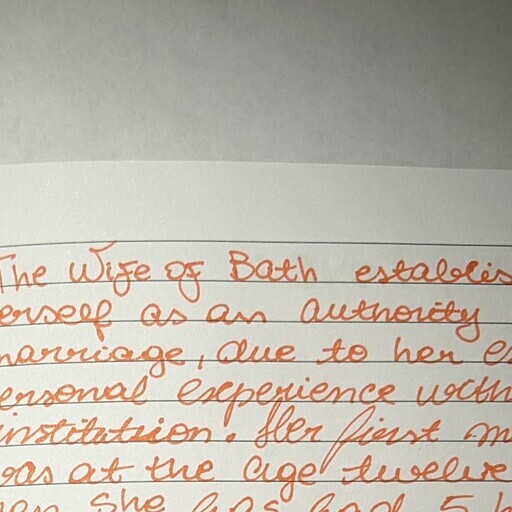 The Wife of Bath establis
erself as an authority
marriage, due to her ex
ersonal experience with
institution. Her first m
was at the age twelve
en she has had 5 h